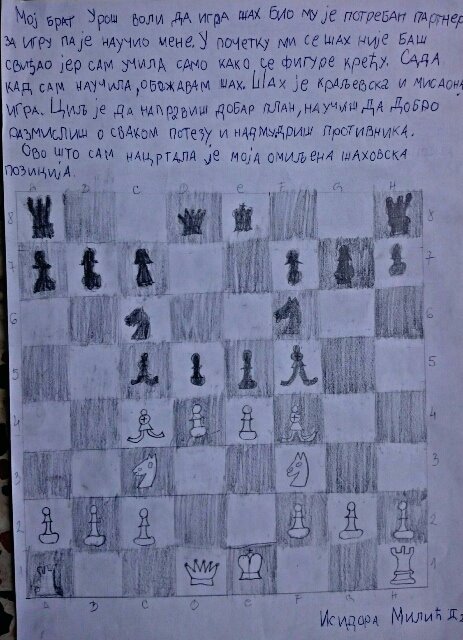 Мој брат Урош воли да игра шах био му је потребан партнер
за игру па је научио мене. У почетку ми се шах није баш
свиђао јер сам учила само како се фигуре крећу. Сада
кад сам научила, обожавам шах. Шах је краљевска и мисаона
игра. Циљ је да направиш добар план, научиш да добро
размислиш о сваком потезу, и надмудриш противника.
Ово што сам нацртала је моја омиљена шаховска
позиција.
A B C D E F G H
8 8
7 7
6 6
5 5
4 4
3 3
2 2
1 1
A B C D E F G H
Исидора Милић II2